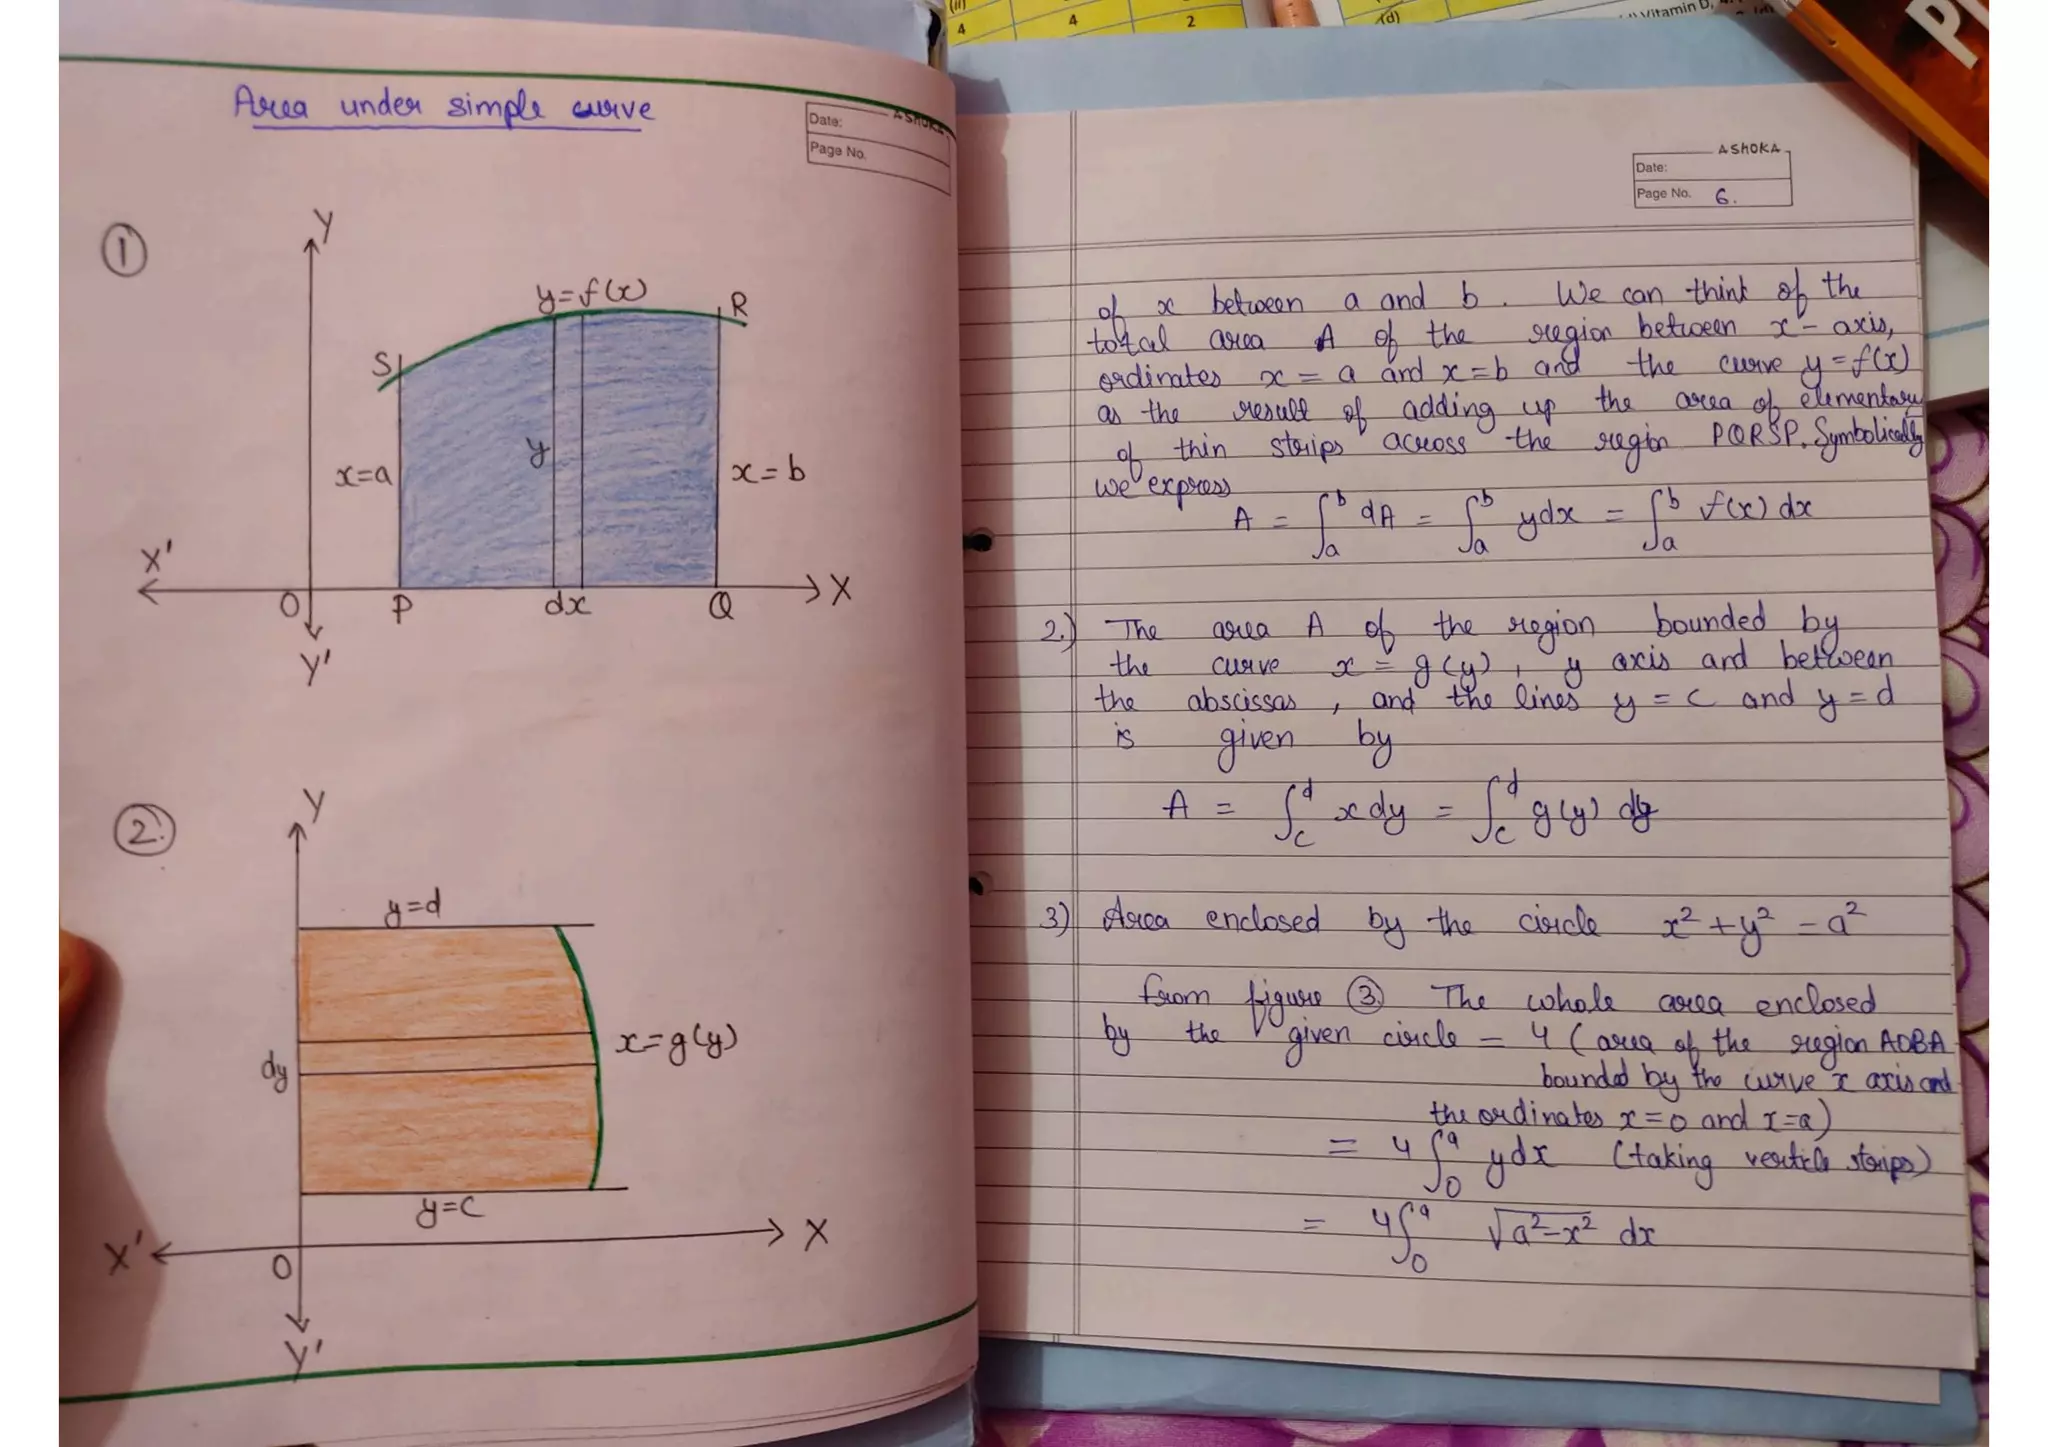 (ii)
4
4
2
(d)
Vitamin D,
P
Area under simple curve
ASHOKA
Date:
Page No.
1
Y
y=f(x)
R
S
y
x=a
x=b
X'
O
P
dx
Q
X
Y'
2.
Y
y=d
x=g(y)
dy
y=c
X'
O
X
Y'
ASHOKA
Date:
Page No. 6.
of x between a and b. We can think of the
total area A of the region between x-axis,
ordinates x = a and x=b and the curve y=f(x)
as the result of adding up the area of elementary
of thin strips across the region PQRSP. Symbolically
we express
A = ∫ₐᵇ dA = ∫ₐᵇ ydx = ∫ₐᵇ f(x) dx
2.) The area A of the region bounded by
the curve x = g(y), y axis and between
the abscissas, and the lines y = c and y = d
is given by
A = ∫_c^d xdy = ∫_c^d g(y) dy
3) Area enclosed by the circle x²+y² = a²
from figure ③ The whole area enclosed
by the given circle = 4 (area of the region AOBA
bounded by the curve x axis and
the ordinates x=0 and x=a)
= 4∫₀ᵃ ydx (taking verticle strips)
= 4∫₀ᵃ √a²-x² dx